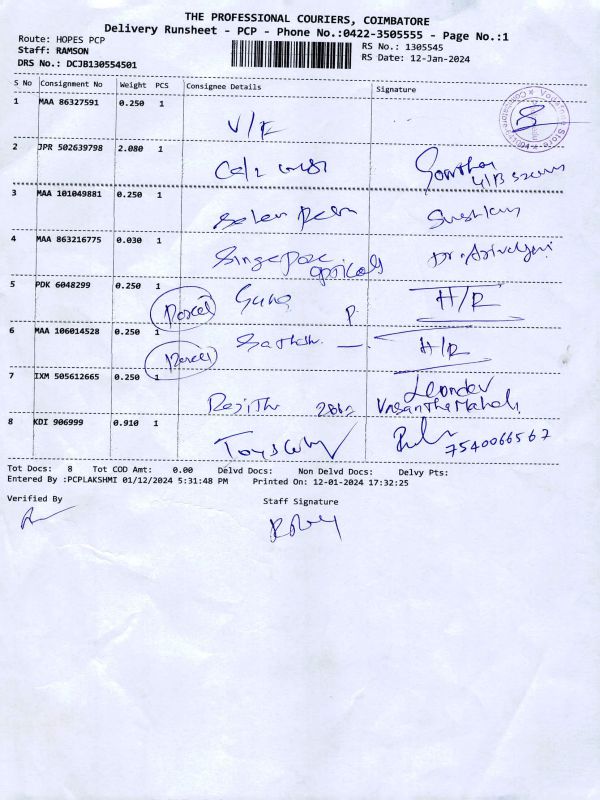 THE PROFESSIONAL COURIERS, COIMBATORE
Delivery Runsheet - PCP - Phone No.:0422-3505555 - Page No.:1
Route: HOPES PCP
RS No.: 1305545
Staff: RAMSON
RS Date: 12-Jan-2024
DRS No.: DCJB130554501
S No Consignment No Weight PCS Consignee Details Signature
1 MAA 86327591 0.250 1
V/F
2 JPR 502639798 2.080 1
3 MAA 101049881 0.250 1
4 MAA 863216775 0.030 1
Singapore opticals
5 PDK 6048299 0.250 1
Parcel Guna P. H/R
6 MAA 106014528 0.250 1
Parcel Sathish. H/R
7 IXM 505612665 0.250 1
Rejith
Vasantha Mahal
8 KDI 906999 0.910 1
7540066567
Tot Docs: 8 Tot COD Amt: 0.00 Delvd Docs: Non Delvd Docs: Delvy Pts:
Entered By :PCPLAKSHMI 01/12/2024 5:31:48 PM Printed On: 12-01-2024 17:32:25
Verified By
Staff Signature